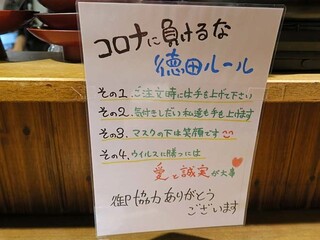 コロナに負けるな
德田ルール
その1.ご注文時には手を上げて下さい
その2.気付きしだい私達も手を上げます
その3.マスクの下は笑顔です
その4.ウイルスに勝つには
愛と誠実が大事
御協力ありがとう
ございます